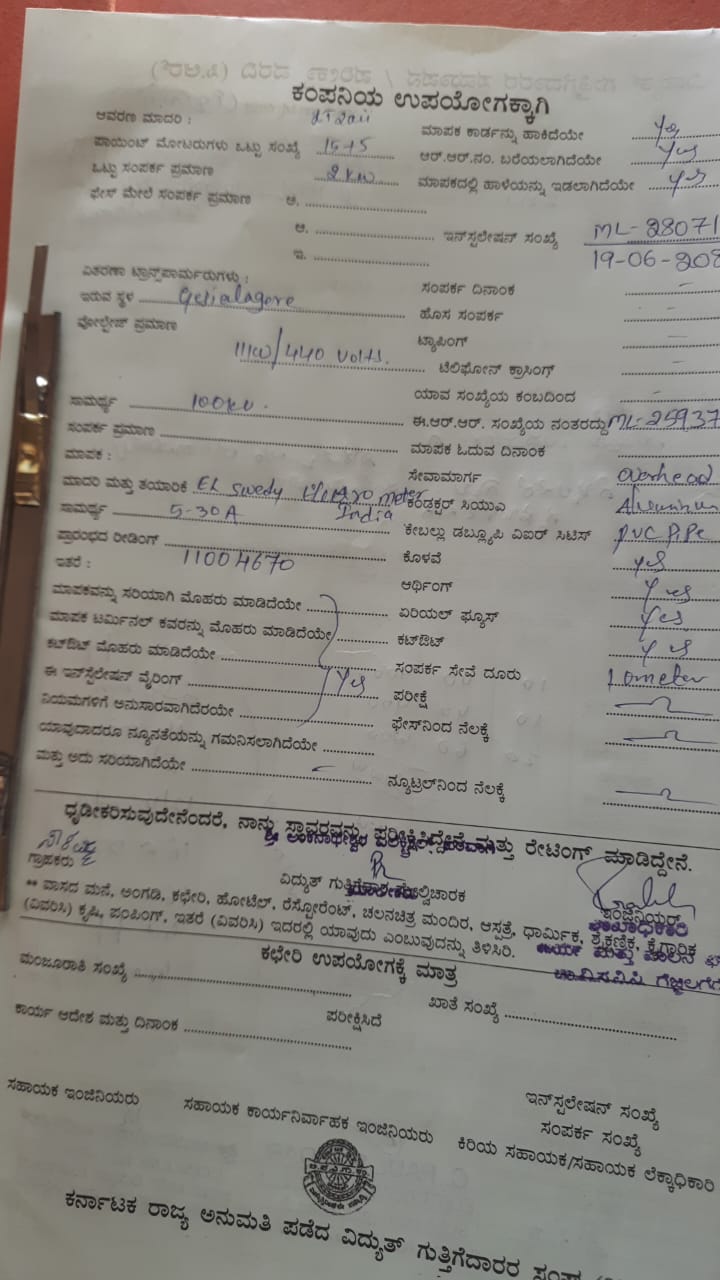 ಕಂಪನಿಯ ಉಪಯೋಗಕ್ಕಾಗಿ
ಆವರಣ ಮಾದರಿ : ಮಾಪಕ ಕಾರ್ಡನ್ನು ಹಾಕಿದೆಯೇ Yes
ಪಾಯಿಂಟ್ ಮೋಟರುಗಳು ಒಟ್ಟು ಸಂಖ್ಯೆ 15+5 ಆರ್.ಆರ್.ನಂ. ಬರೆಯಲಾಗಿದೆಯೇ Yes
ಒಟ್ಟು ಸಂಪರ್ಕ ಪ್ರಮಾಣ 2 KW ಮಾಪಕದಲ್ಲಿ ಹಾಳೆಯನ್ನು ಇಡಲಾಗಿದೆಯೇ Yes
ಫೇಸ್ ಮೇಲೆ ಸಂಪರ್ಕ ಪ್ರಮಾಣ ಅ.
ಆ. ಇನ್‌ಸ್ಟಲೇಷನ್ ಸಂಖ್ಯೆ ML-28071
ಇ. 19-06-20
ವಿತರಣಾ ಟ್ರಾನ್ಸ್‌ಪಾರ್ಮರುಗಳು : ಸಂಪರ್ಕ ದಿನಾಂಕ
ಇರುವ ಸ್ಥಳ ಹೊಸ ಸಂಪರ್ಕ
ವೋಲ್ಟೇಜ್ ಪ್ರಮಾಣ ಟ್ಯಾಪಿಂಗ್
/440 volts. ಟೆಲಿಫೋನ್ ಕ್ರಾಸಿಂಗ್
ಯಾವ ಸಂಖ್ಯೆಯ ಕಂಬದಿಂದ
ಸಾಮರ್ಥ್ಯ 100KV. ಈ.ಆರ್.ಆರ್. ಸಂಖ್ಯೆಯ ನಂತರದ್ದು ML-25937
ಸಂಪರ್ಕ ಪ್ರಮಾಣ ಮಾಪಕ ಓದುವ ದಿನಾಂಕ
ಮಾಪಕ : ಸೇವಾಮಾರ್ಗ overhead
ಮಾದರಿ ಮತ್ತು ತಯಾರಿಕೆ EL Swedy meter India ಕಂಡಕ್ಟರ್ ಸಿಯುಎ
ಸಾಮರ್ಥ್ಯ 5-30A ಕೇಬಲ್ಲು ಡಬ್ಲ್ಯೂಪಿ ವಿಐರ್ ಸಿಟಿಸ್ PVC PiPe
ಪ್ರಾರಂಭದ ರೀಡಿಂಗ್ ಕೊಳವೆ yes
ಇತರೆ : 11004670 ಆರ್ಥಿಂಗ್ Yes
ಮಾಪಕವನ್ನು ಸರಿಯಾಗಿ ಮೊಹರು ಮಾಡಿದೆಯೇ ಏರಿಯಲ್ ಫ್ಯೂಸ್ Yes
ಮಾಪಕ ಟರ್ಮಿನಲ್ ಕವರನ್ನು ಮೊಹರು ಮಾಡಿದೆಯೇ ಕಟ್‌ಔಟ್ Yes
ಕಟ್‌ಔಟ್ ಮೊಹರು ಮಾಡಿದೆಯೇ ಸಂಪರ್ಕ ಸೇವೆ ದೂರು
ಈ ಇನ್‌ಸ್ಟಲೇಷನ್ ವೈರಿಂಗ್ Yes ಪರೀಕ್ಷೆ
ನಿಯಮಗಳಿಗೆ ಅನುಸಾರವಾಗಿದೆರಯೇ ಫೇಸ್‌ನಿಂದ ನೆಲಕ್ಕೆ
ಯಾವುದಾದರೂ ನ್ಯೂನತೆಯನ್ನು ಗಮನಿಸಲಾಗಿದೆಯೇ
ಮತ್ತು ಅದು ಸರಿಯಾಗಿದೆಯೇ ನ್ಯೂಟ್ರಲ್‌ನಿಂದ ನೆಲಕ್ಕೆ
ಧೃಡೀಕರಿಸುವುದೇನೆಂದರೆ, ನಾನು ಸ್ಥಾವರವನ್ನು ಪರೀಕ್ಷಿಸಿದ್ದೇನೆ ಮತ್ತು ರೇಟಿಂಗ್ ಮಾಡಿದ್ದೇನೆ.
ಗ್ರಾಹಕರು ವಿದ್ಯುತ್ ಗುತ್ತಿಗೆದಾರ ಮೇಲ್ವಿಚಾರಕ ಇಂಜಿನಿಯರ್
** ವಾಸದ ಮನೆ, ಅಂಗಡಿ, ಕಛೇರಿ, ಹೋಟೆಲ್, ರೆಸ್ಟೋರೆಂಟ್, ಚಲನಚಿತ್ರ ಮಂದಿರ, ಆಸ್ಪತ್ರೆ, ಧಾರ್ಮಿಕ, ಶೈಕ್ಷಣಿಕ, ಕೈಗಾರಿಕ
(ವಿವರಿಸಿ) ಕೃಷಿ, ಪಂಪಿಂಗ್, ಇತರೆ (ವಿವರಿಸಿ) ಇದರಲ್ಲಿ ಯಾವುದು ಎಂಬುವುದನ್ನು ತಿಳಿಸಿರಿ.
ಕಛೇರಿ ಉಪಯೋಗಕ್ಕೆ ಮಾತ್ರ
ಮಂಜೂರಾತಿ ಸಂಖ್ಯೆ ಖಾತೆ ಸಂಖ್ಯೆ
ಕಾರ್ಯ ಆದೇಶ ಮತ್ತು ದಿನಾಂಕ ಪರೀಕ್ಷಿಸಿದೆ
ಇನ್‌ಸ್ಪಲೇಷನ್ ಸಂಖ್ಯೆ
ಸಂಪರ್ಕ ಸಂಖ್ಯೆ
ಸಹಾಯಕ ಇಂಜಿನಿಯರು ಸಹಾಯಕ ಕಾರ್ಯನಿರ್ವಾಹಕ ಇಂಜಿನಿಯರು ಕಿರಿಯ ಸಹಾಯಕ/ಸಹಾಯಕ ಲೆಕ್ಕಾಧಿಕಾರಿ
ಕರ್ನಾಟಕ ರಾಜ್ಯ ಅನುಮತಿ ಪಡೆದ ವಿದ್ಯುತ್ ಗುತ್ತಿಗೆದಾರರ ಸಂಘ